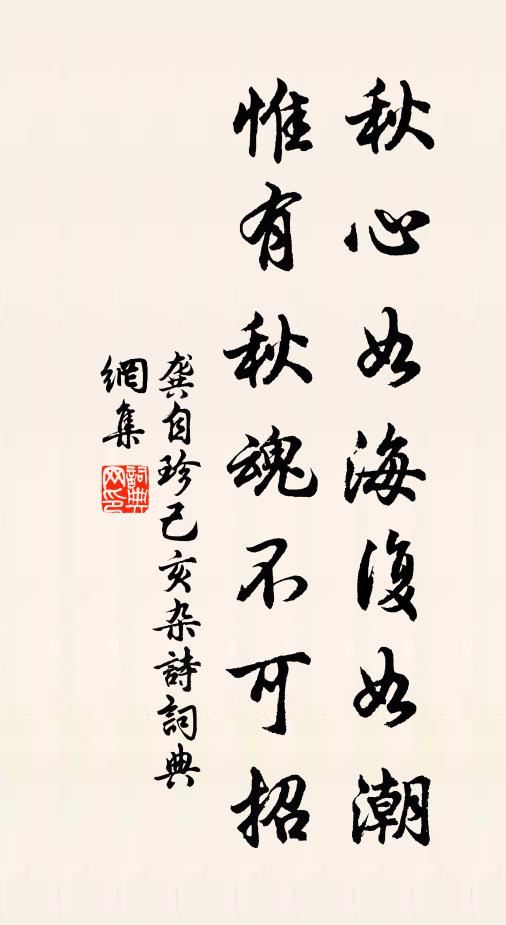 秋心如海復如潮
惟有秋魂不可招
龚自珍己亥杂詩詞典
網集
詞典網印